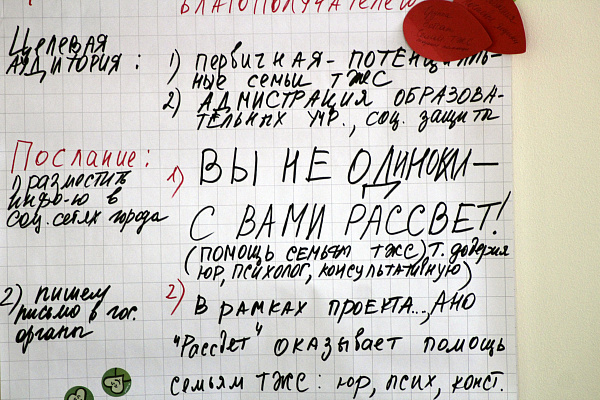 БЛАГОПОЛУЧАТЕЛЕЙ
Целевая
АУДИТОРИЯ:
1) первичная - потенциаль-
ные семьи ТЖС
2) АДМИСТРАЦИЯ ОБРАЗОВА-
ТЕЛЬНЫХ УЧР., соц. защиты
Послание:
1) разместить
инфо-ю в
соц. сетях города
1) ВЫ НЕ ОДИНОКИ —
С ВАМИ РАССВЕТ!
(ПОМОЩЬ СЕМЬЯМ ТЖС) Т. доверия
юр, психолог, консультативную)
2) пишем
письмо в гос.
органы
2) В РАМКАХ ПРОЕКТА..., АНО
"Рассвет" оказывает помощь
семьям ТЖС: юр, псих, конс.